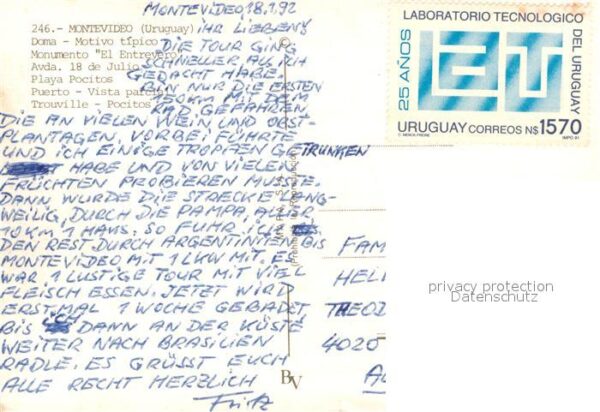 MONTEVIDEO 18.1.92
IHR LIEBEN!
DIE TOUR GING
SCHNELLER ALS ICH
GEDACHT HABE.
BIN NUR DIE ERSTEN
KM MIT DEM
RAD GEFAHREN
DIE AN VIELEN WEIN UND OBST-
PLANTAGEN VORBEI FÜHRTE
UND ICH EINIGE TROPFEN GETRUNKEN
HABE UND VON VIELEN
FRÜCHTEN PROBIEREN MUSSTE.
DANN WURDE DIE STRECKE LANG-
WEILIG, DURCH DIE PAMPA, ALLE
10KM 1 HAUS. SO FUHR ICH
DEN REST DURCH ARGENTINIEN BIS
MONTEVIDEO MIT 1 LKW MIT. ES
WAR 1 LUSTIGE TOUR MIT VIEL
FLEISCH ESSEN. JETZT WIRD
ERSTMAL 1 WOCHE GEBADET
BIS ICH DANN AN DER KÜSTE
WEITER NACH BRASILIEN
RADLE. ES GRÜSST EUCH
ALLE RECHT HERZLICH
Fritz
246.- MONTEVIDEO (Uruguay)
Doma - Motivo típico
Monumento "El Entrevero"
Avda. 18 de Julio
Playa Pocitos
Puerto - Vista parcial
Trouville - Pocitos
BV
LABORATORIO TECNOLOGICO
DEL URUGUAY
25 AÑOS
URUGUAY CORREOS N$ 1570
FAM
HELL
THEOD
4020
privacy protection
Datenschutz